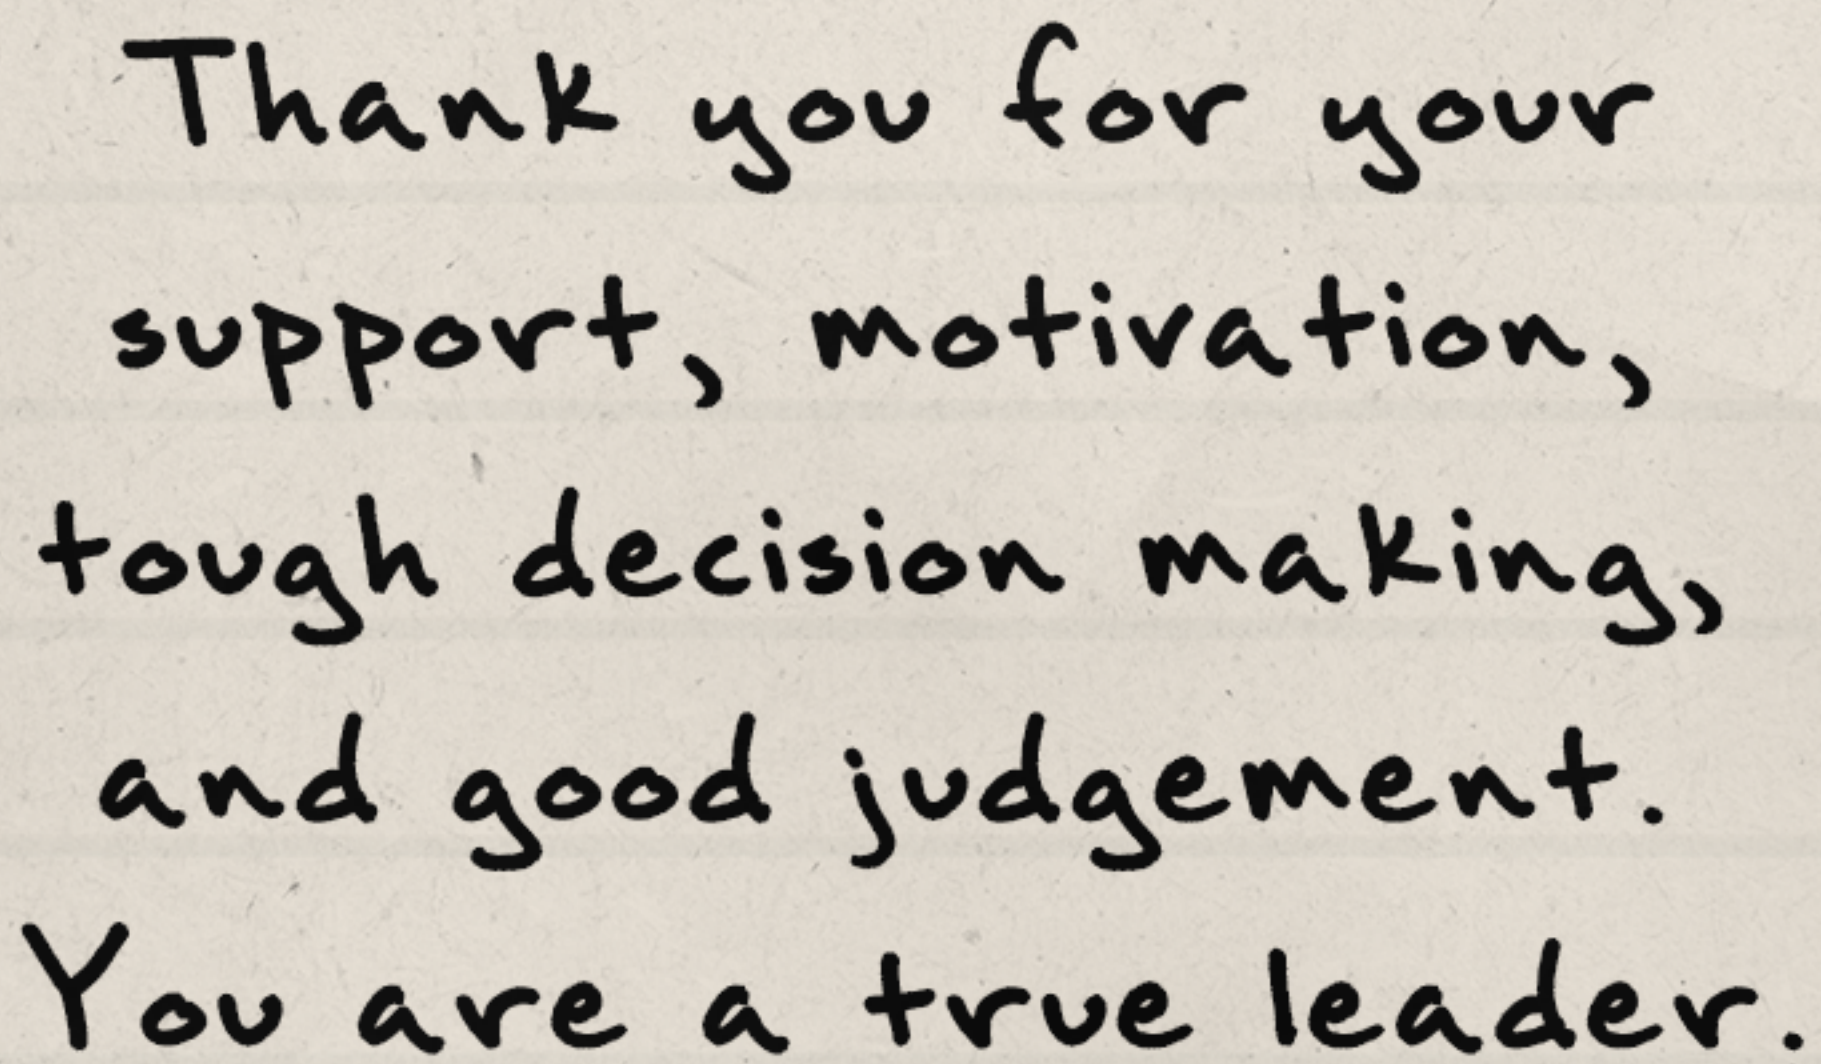 Thank you for your
support, motivation,
tough decision making,
and good judgement.
You are a true leader.